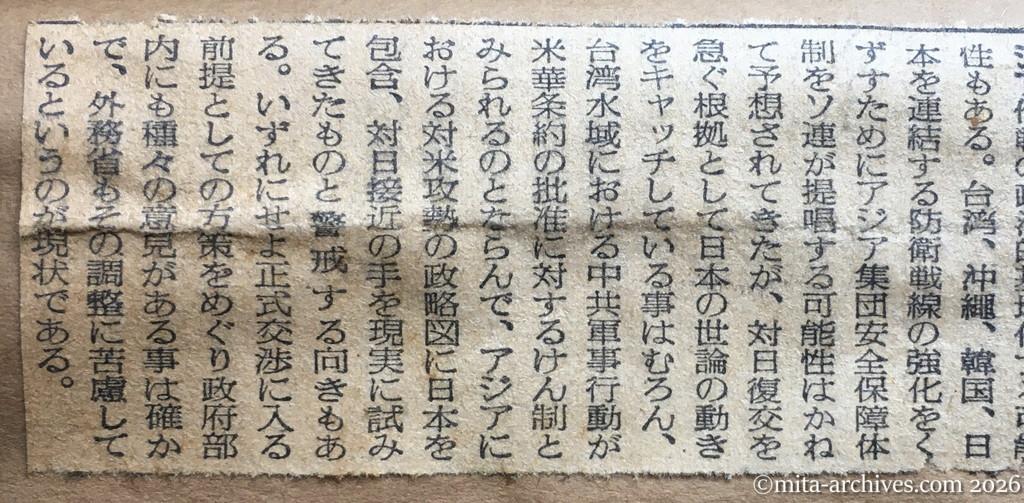 性もある。台湾、沖縄、韓国、日
本を連結する防衛戦線の強化をく
ずすためにアジア集団安全保障体
制をソ連が提唱する可能性はかね
て予想されてきたが、対日復交を
急ぐ根拠として日本の世論の動き
をキャッチしている事はむろん、
台湾水域における中共軍事行動が
米華条約の批准に対するけん制と
みられるのとならんで、アジアに
おける対米攻勢の政略図に日本を
包含、対日接近の手を現実に試み
てきたものと警戒する向きもあ
る。いずれにせよ正式交渉に入る
前提としての方策をめぐり政府部
内にも種々の意見がある事は確か
で、外務省もその調整に苦慮して
いるというのが現状である。
©mita-archives.com 2026